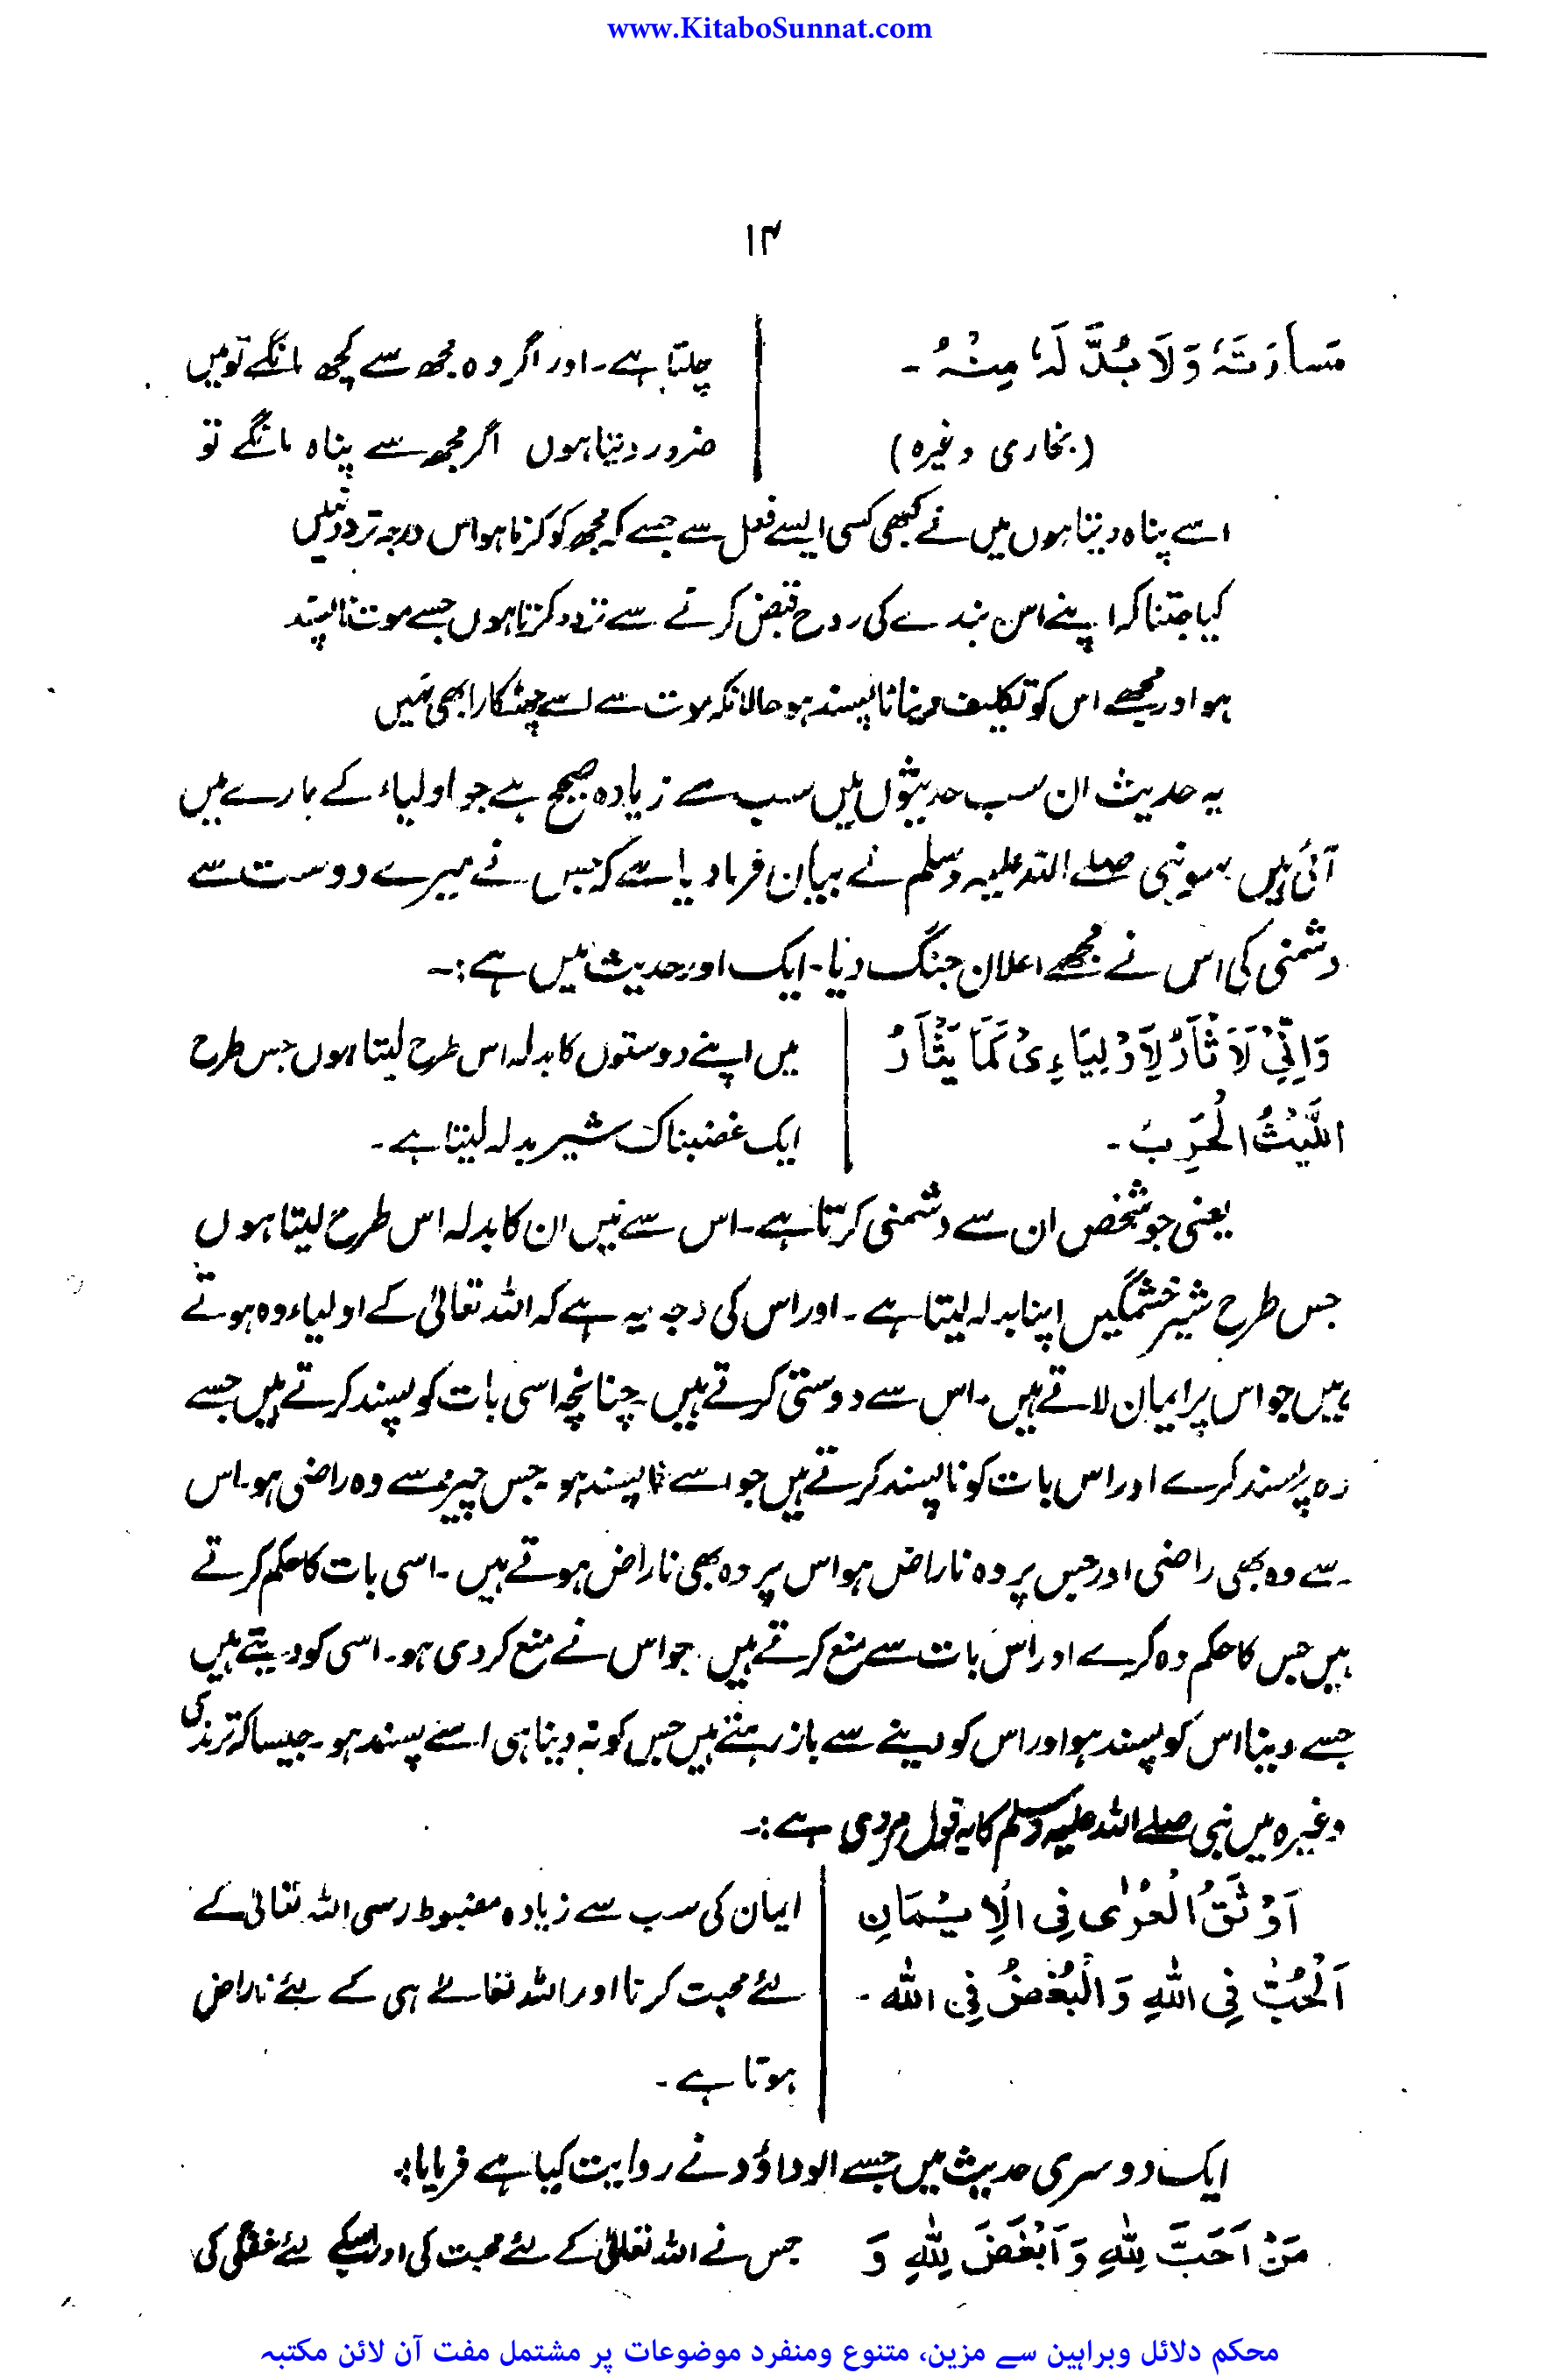 www.KitaboSunnat.com
۱۴
مَسَاءَتَهٗ وَلَا بُدَّ لَهٗ مِنْهُ ۔
(بخاری وغیرہ)
چلتا ہے ۔ اور اگر وہ مجھ سے کچھ مانگے تو میں
ضرور دیتا ہوں اگر مجھ سے پناہ مانگے تو
اسے پناہ دیتا ہوں میں نے کبھی کسی ایسے فعل سے جسے کہ مجھ کو کرنا ہو اس درجہ تردد نہیں
کیا جتنا کہ اپنے اس بندے کی روح قبض کرنے سے تردد کرتا ہوں جسے موت ناپسند
ہو اور مجھے اس کو تکلیف دینا ناپسند ہو حالانکہ موت سے اسے چھٹکارا بھی نہیں
یہ حدیث ان سب حدیثوں میں سب سے زیادہ صحیح ہے جو اولیاء کے بارے میں
آئی ہیں سو نبی صلے اللہ علیہ وسلم نے بیان فرما دیا ہے کہ جس نے میرے دوست سے
دشمنی کی اس نے مجھے اعلان جنگ دیا ۔ ایک اور حدیث میں ہے :۔
وَاِنِّيْ لَاَثْأَرُ لِاَوْلِيَاءِيْ كَمَا يَثْأَرُ
اللَّيْثُ الْحَرِبَ ۔
میں اپنے دوستوں کا بدلہ اس طرح لیتا ہوں جس طرح
ایک غضبناک شیر بدلہ لیتا ہے ۔
یعنی جو شخص ان سے دشمنی کرتا ہے ۔ اس سے میں ان کا بدلہ اس طرح لیتا ہوں
جس طرح شیر خشمگیں اپنا بدلہ لیتا ہے ۔ اور اس کی وجہ یہ ہے کہ اللہ تعالیٰ کے اولیاء وہ ہوتے
ہیں جو اس پر ایمان لاتے ہیں ۔ اس سے دوستی کرتے ہیں ۔ چنانچہ اسی بات کو پسند کرتے ہیں جسے
وہ پسند کرے اور اس بات کو ناپسند کرتے ہیں جو اسے ناپسند ہو ۔ جس چیز سے وہ راضی ہو ۔ اس
سے وہ بھی راضی اور جس پر وہ ناراض ہو اس پر وہ بھی ناراض ہوتے ہیں ۔ اسی بات کا حکم کرتے
ہیں جس کا حکم وہ کرے اور اس بات سے منع کرتے ہیں جو اس نے منع کر دی ہو ۔ اسی کو دیتے ہیں
جسے دینا اس کو پسند ہو اور اس کو دینے سے باز رہتے ہیں جس کو نہ دینا ہی اسے پسند ہو ۔ جیسا کہ ترمذی
وغیرہ میں نبی صلے اللہ علیہ وسلم کا یہ قول مروی ہے :۔
اَوْثَقُ الْعُرٰى فِى الْاِيْمَانِ
اَلْحُبُّ فِى اللهِ وَالْبُغْضُ فِى الله ۔
ایمان کی سب سے زیادہ مضبوط رسی اللہ تعالیٰ کے
لئے محبت کرنا اور اللہ تعالےٰ ہی کے لئے ناراض
ہوتا ہے ۔
ایک دوسری حدیث میں جسے ابوداؤد نے روایت کیا ہے فرمایا:
مَنْ اَحَبَّ لِلّٰهِ وَاَبْغَضَ لِلّٰهِ وَ
جس نے اللہ تعالیٰ کے لئے محبت کی اور اسکے لئے خفگی کی
محکم دلائل وبراہین سے مزین، متنوع ومنفرد موضوعات پر مشتمل مفت آن لائن مکتبہ